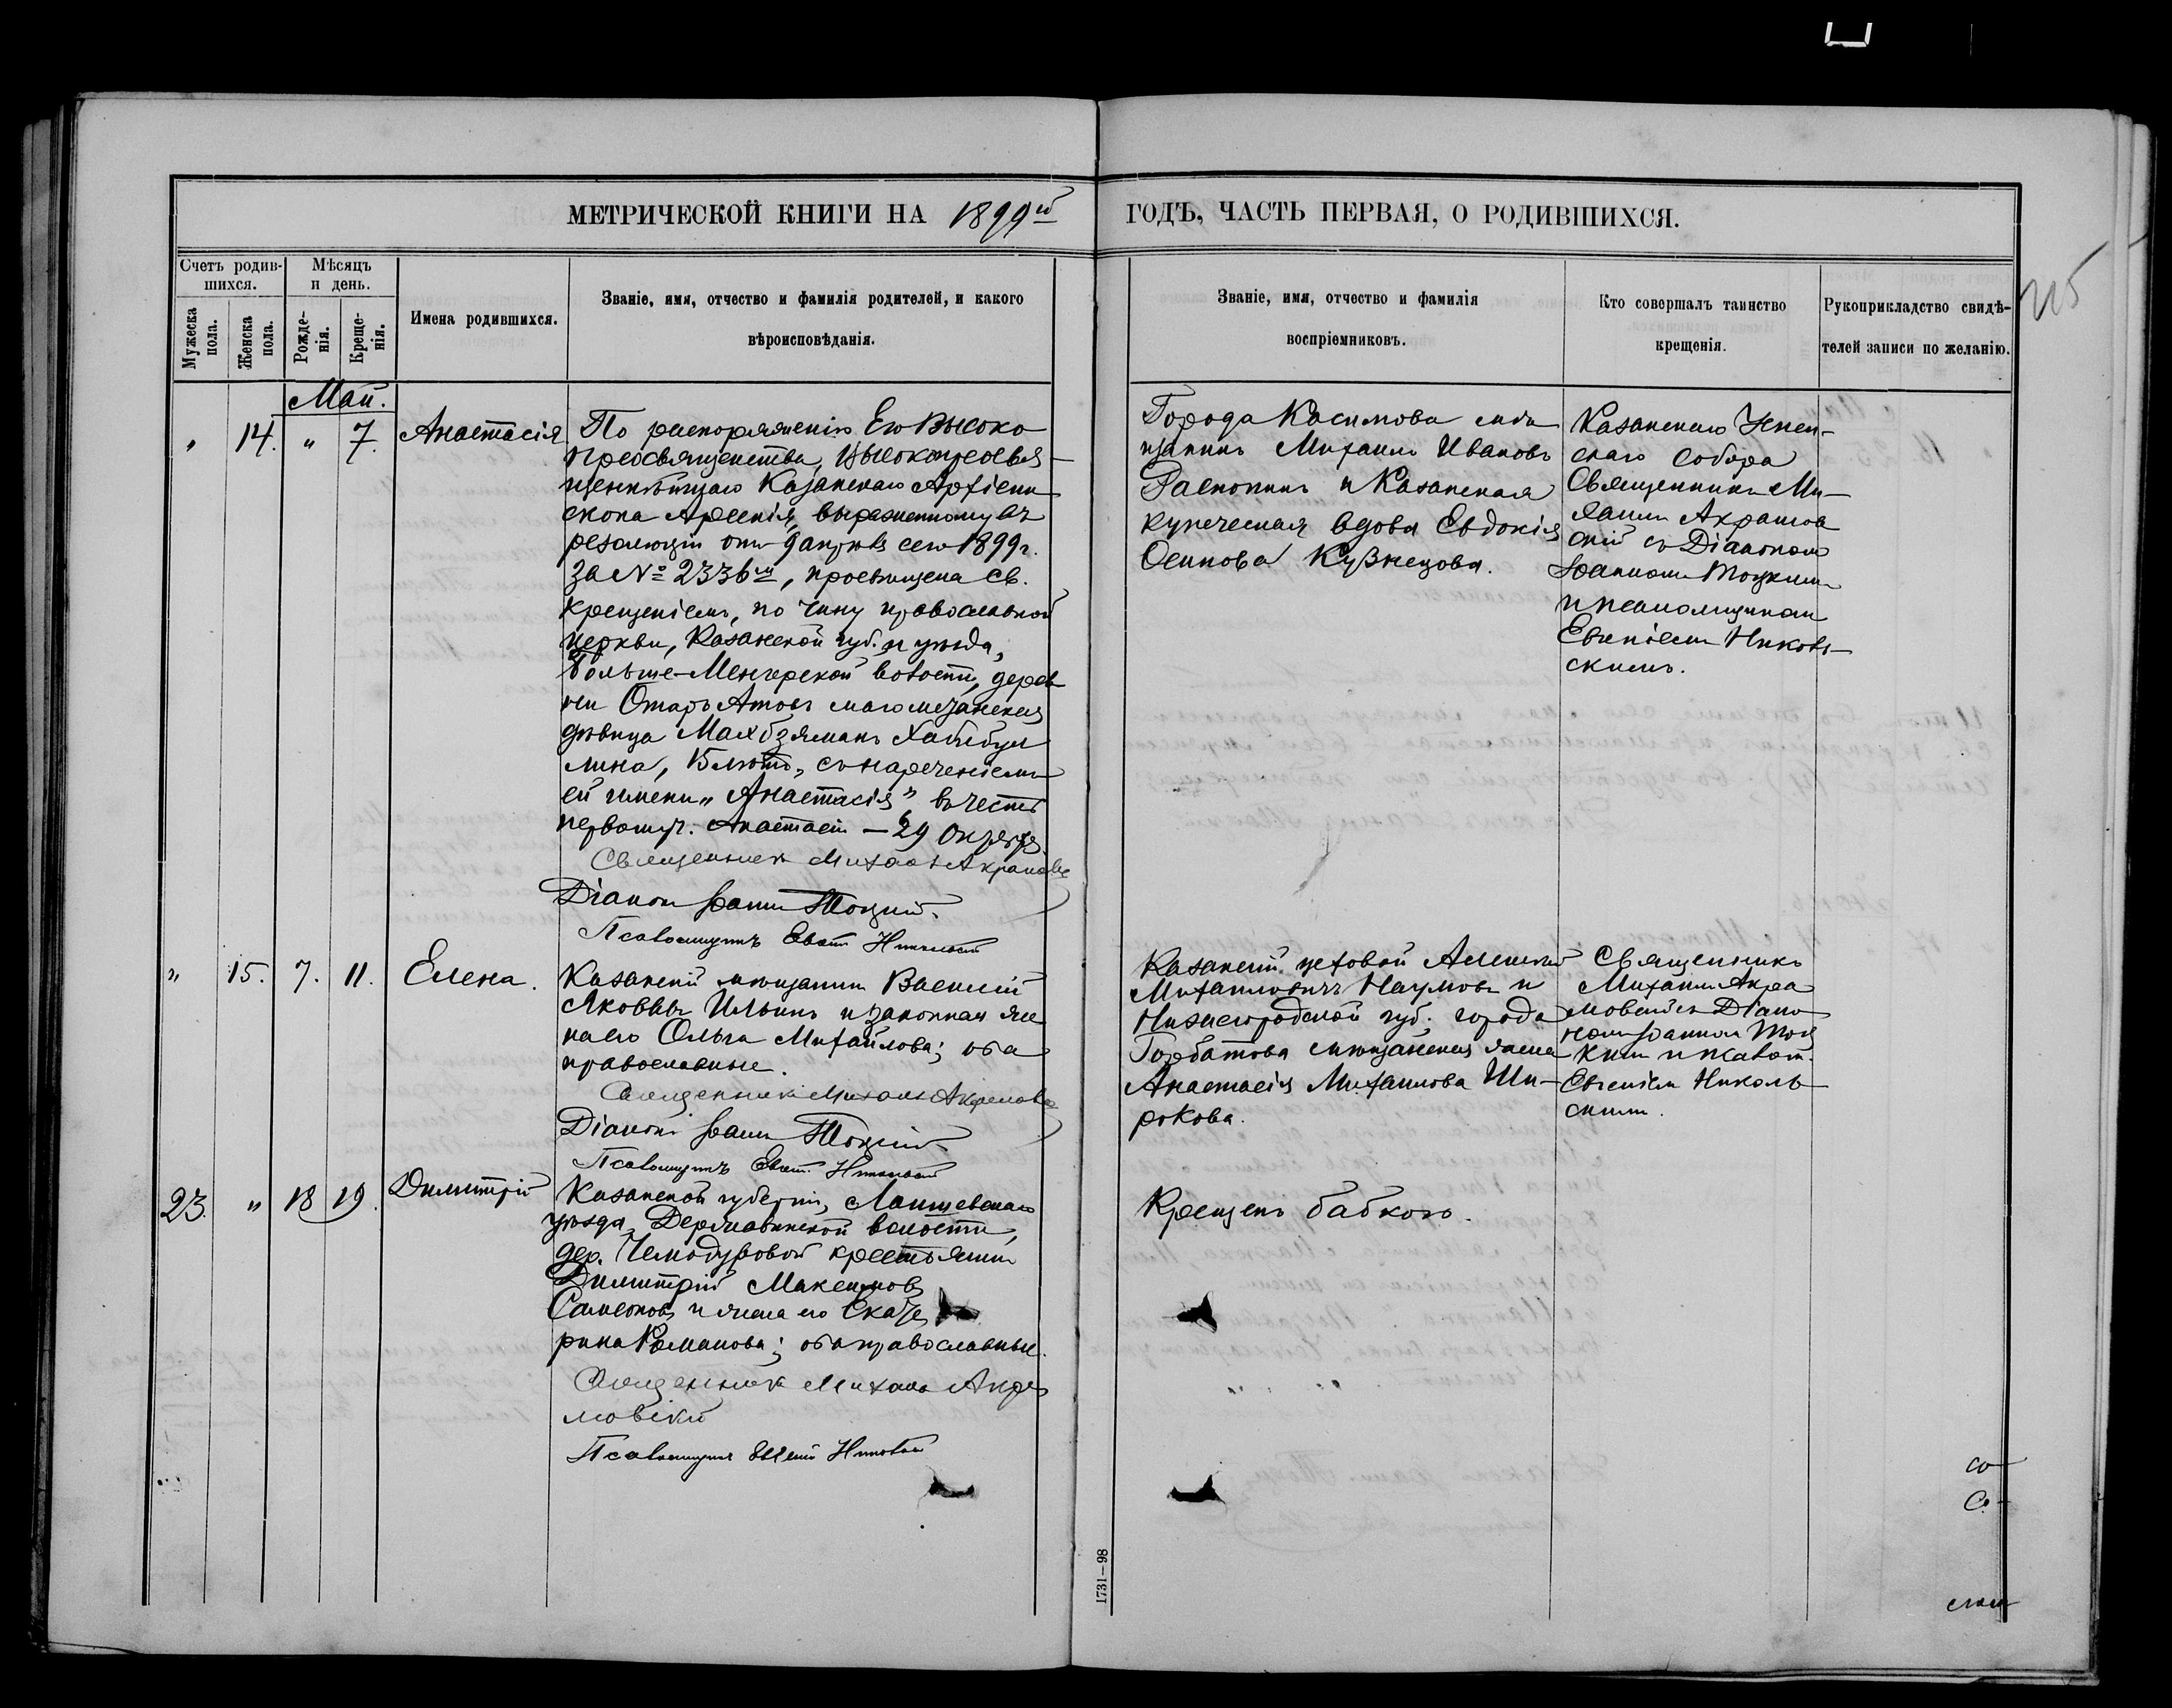 МЕТРИЧЕСКОЙ КНИГИ НА 1899й ГОДЪ, ЧАСТЬ ПЕРВАЯ, О РОДИВШИХСЯ.
Счетъ родив-
шихся.
Мужеска
пола.
Женска
пола.
Мѣсяцъ
и день.
Рожде-
нія.
Креще-
нія.
Имена родившихся.
Званіе, имя, отчество и фамилія родителей, и какого
вѣроисповѣданія.
Званіе, имя, отчество и фамилія
воспріемниковъ.
Кто совершалъ таинство
крещенія.
Рукоприкладство свидѣ-
телей записи по желанію.
Май.
" 14. " 7. Анастасія
По распоряженію Его Высоко
преосвященства, Высокопреосвя-
щеннѣйшаго Казанскаго Архіепи
скопа Арсенія, выраженному въ
резолюціи отъ 9 апрѣля сего 1899 г.
за № 2336, просвѣщена св.
крещеніемъ, по чину православной
церкви, Казанской губ. и уѣзда,
Больше-Менгерской волости, дерев
ни Отаръ Атовъ магометанская
дѣвица
лина, 15 лѣтъ, съ нареченіемъ
ей имени "Анастасія" въ честь
первомуч. Анастасіи — 29 Октября.
Священникъ Михаилъ Акрамовск
Діаконъ Іоаннъ Троцкій.
Псаломщикъ Евген Никольскій
Города Касимова мѣ
щанинъ Михаилъ Ивановъ
Распопинъ и Казанская
купеческая вдова Евдокія
Осипова Кузнецова.
Казанскаго Успен-
скаго собора
Священникъ Ми-
хаилъ Акрамов
скій съ Діакономъ
Іоанномъ Троцкимъ
и псаломщикомъ
Евгеніемъ Николь-
скимъ.
" 15. 7. 11. Елена.
Казанскій мѣщанинъ Василій
Яковлевъ Ильинъ и законная же
на его Ольга Михайлова; оба
православные.
Священникъ Михаилъ Акрамовск
Діаконъ Іоаннъ Троцкій
Псаломщикъ Евген. Никольскій
Казанскій цеховой Алексѣй
Михаиловичъ Наумовъ и
Нижегородской губ. города
Горбатова мѣщанская жена
Анастасія Михаилова Ши-
рокова.
Священникъ
Михаилъ Акра
мовскій съ Діако
номъ Іоанномъ Троц
кимъ и псалом.
Евгеніемъ Николь
скимъ.
23. " 18 19. Димитрій
Казанской губерніи, Лаишевскаго
уѣзда, Державинской волости,
дер. Чемодуровой крестьянинъ
Димитрій Максимовъ
Самсоновъ и жена его Екате
рина Романова; оба православные.
Священникъ Михаилъ Акра
мовскій
Псаломщикъ Евгеній Никольскій
Крещенъ бабкою.
1731—98